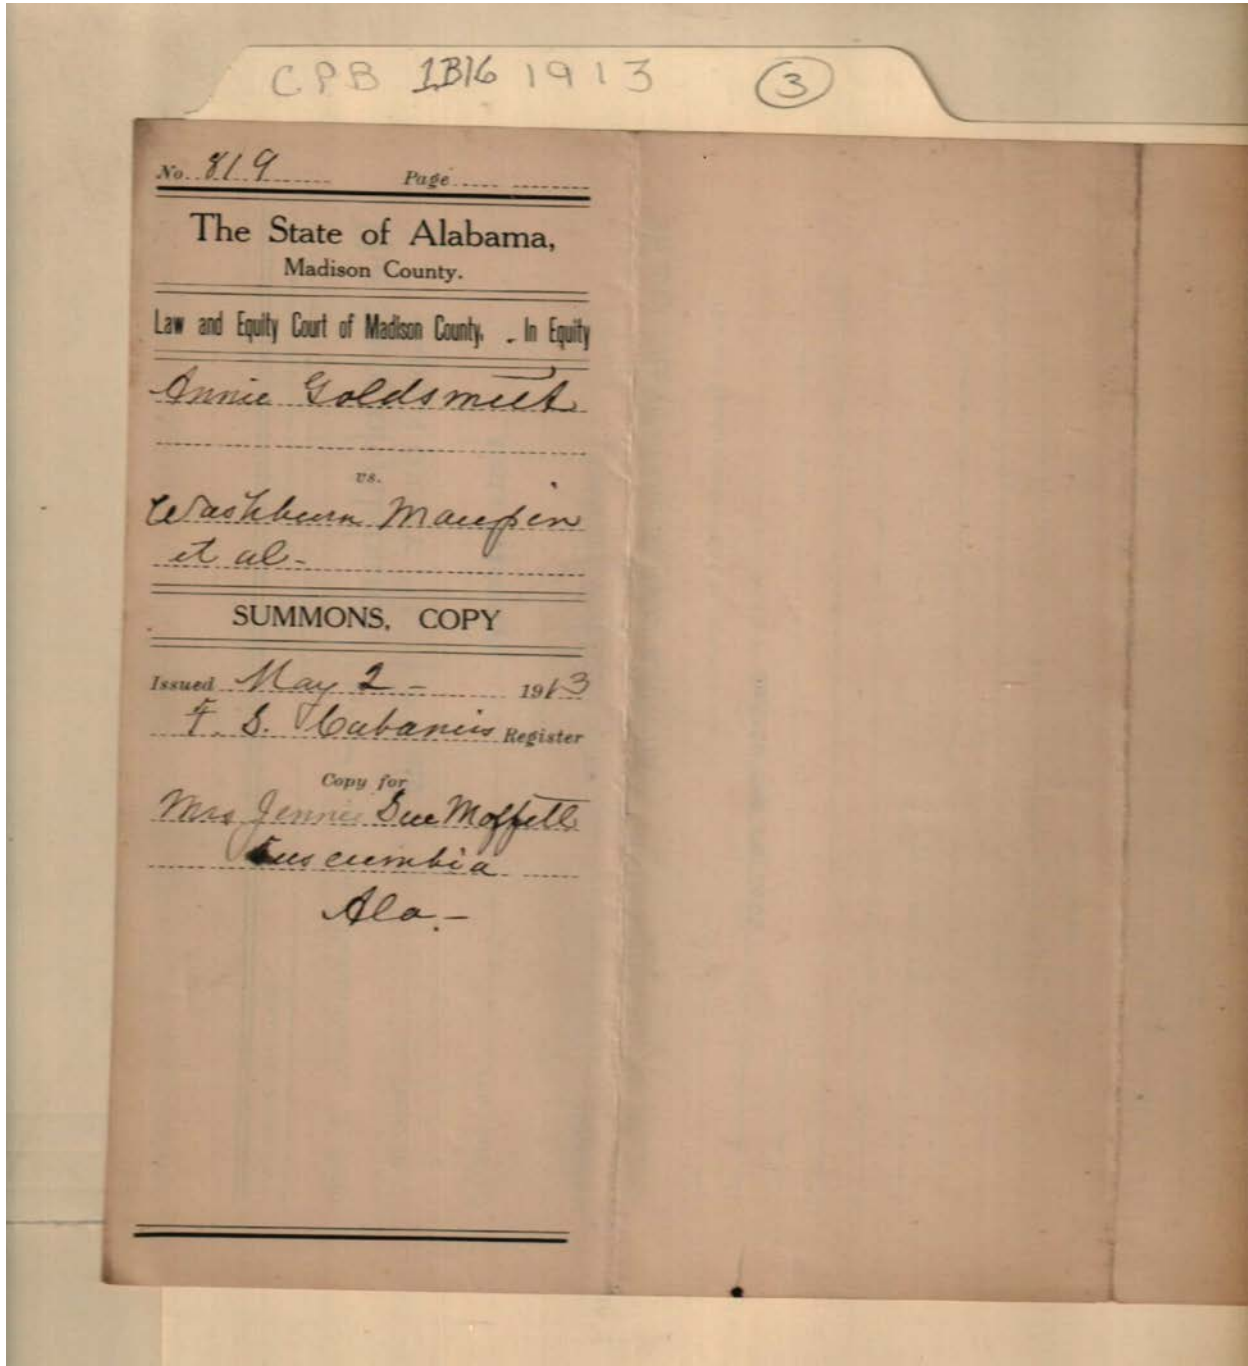 CPB 1B16 1913 3
No. 819 Page
The State of Alabama,
Madison County.
Law and Equity Court of Madison County. - In Equity
Annie Goldsmith
vs.
Washburn Maupin
et al -
SUMMONS, COPY
Issued May 2 - 1913
F. S. Cabaniss Register
Copy for
Mrs Jennie Sue Moffett
Tuscumbia
Ala. -